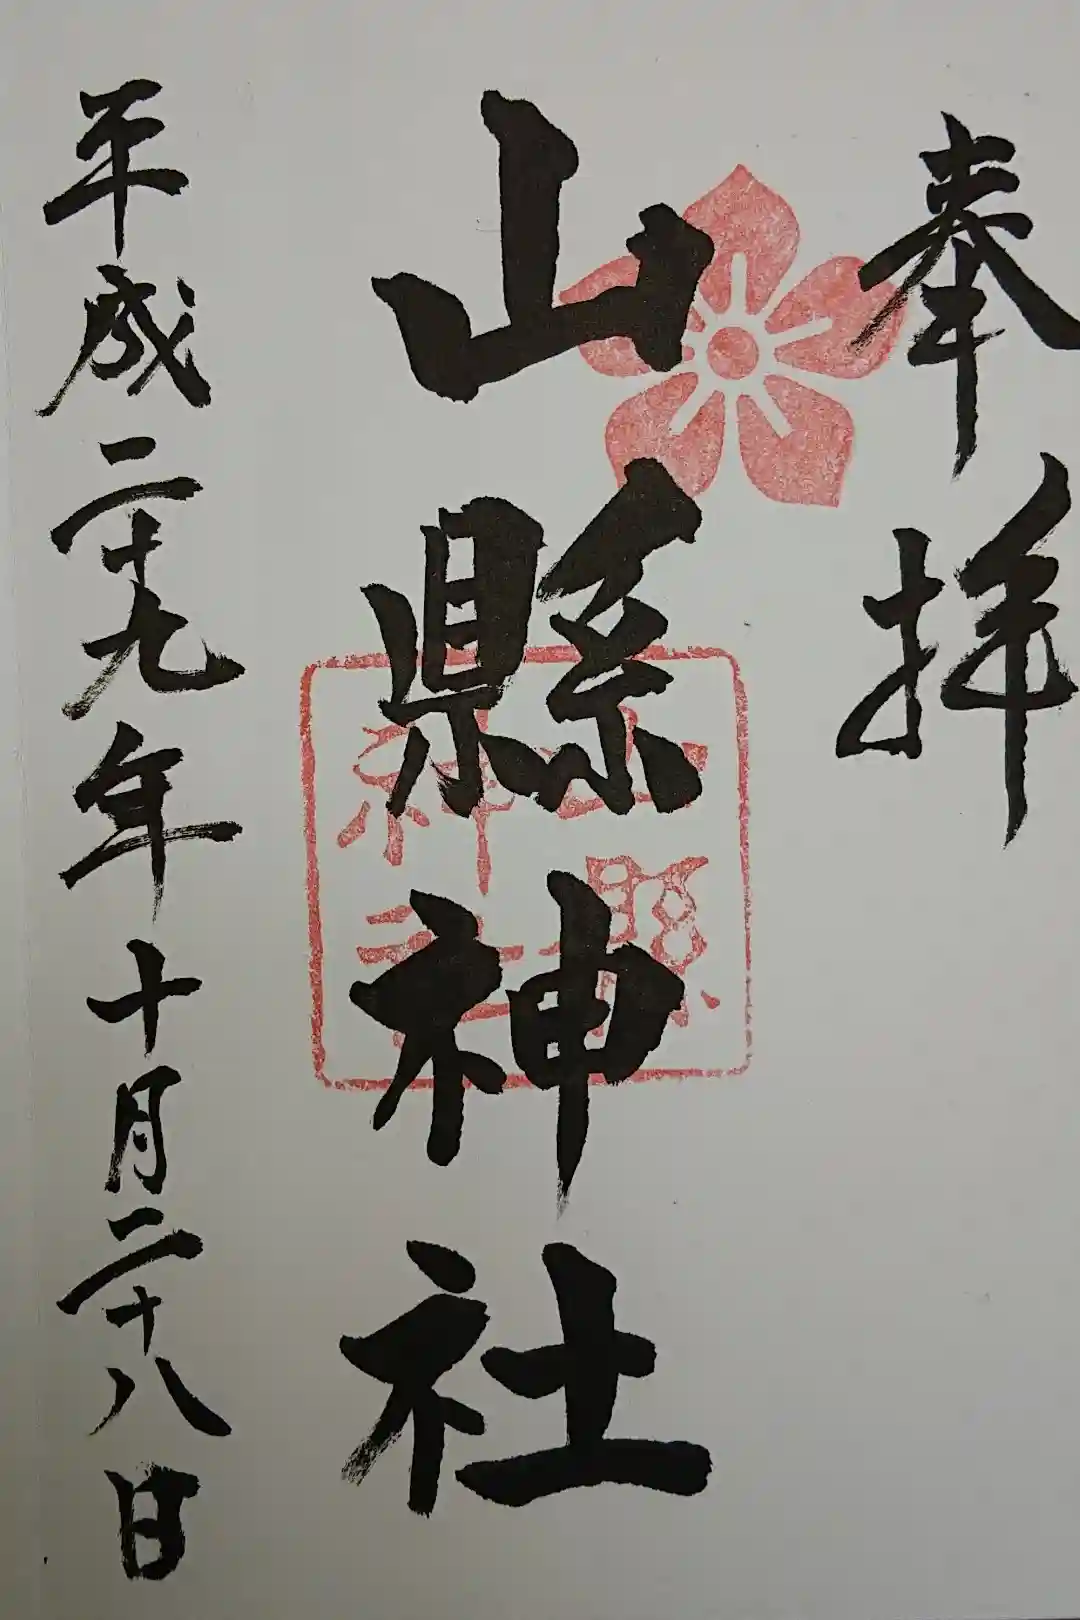 奉拝
山縣神社
山縣
神社
平成二十九年十月二十八日